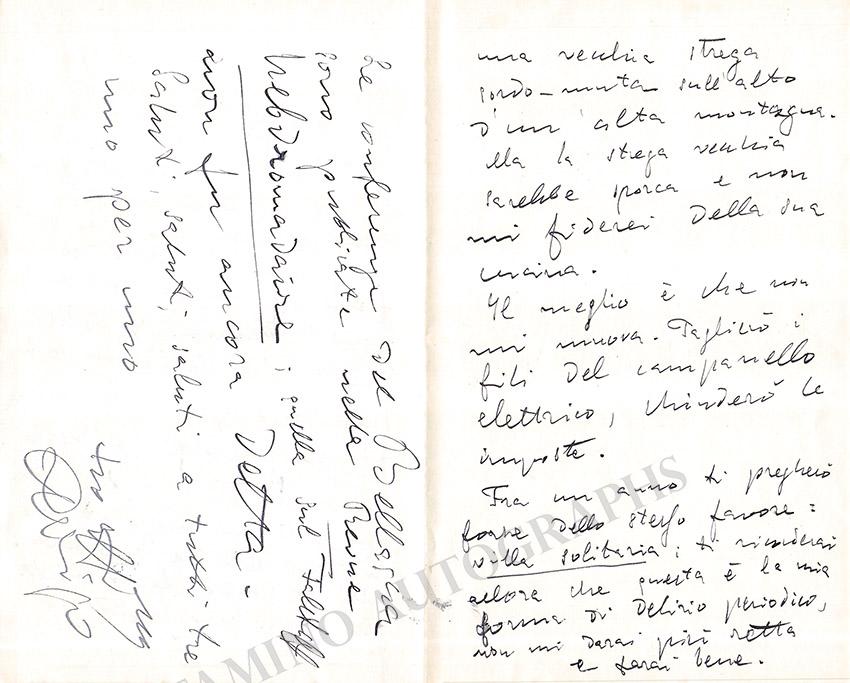 una vecchia strega
sordo-muta sull'alto
D'un'alta montagna.
Ma la strega vecchia
sarebbe sporca e non
mi fiderei Della sua
cucina.
Il meglio è che non
mi muova. Taglierò i
fili Del campanello
elettrico, chiuderò le
imposte.
Fra un anno ti pregherò
forse Dello stesso favore:
villa solitaria; ti ricorderai
allora che questa è la mia
forma Di Delirio periodico,
non mi Darai più retta
e farai bene.
Le conferenze Del Bellaigue
sono pubblicate nella Revue
hebdomadaire; quella sul Falstaff
non fu ancora Detta.
Saluti, saluti, saluti a tutti tre
uno per uno
tuo aff
Arrigo
TAMINO AUTOGRAPHS